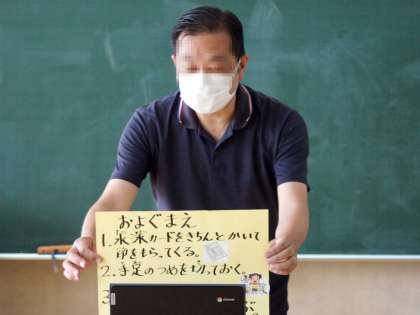 およぐまえ
1. 水泳カードをきちんとかいて
印をもらってくる。
2. 手足のつめを切っておく。
3
chrome